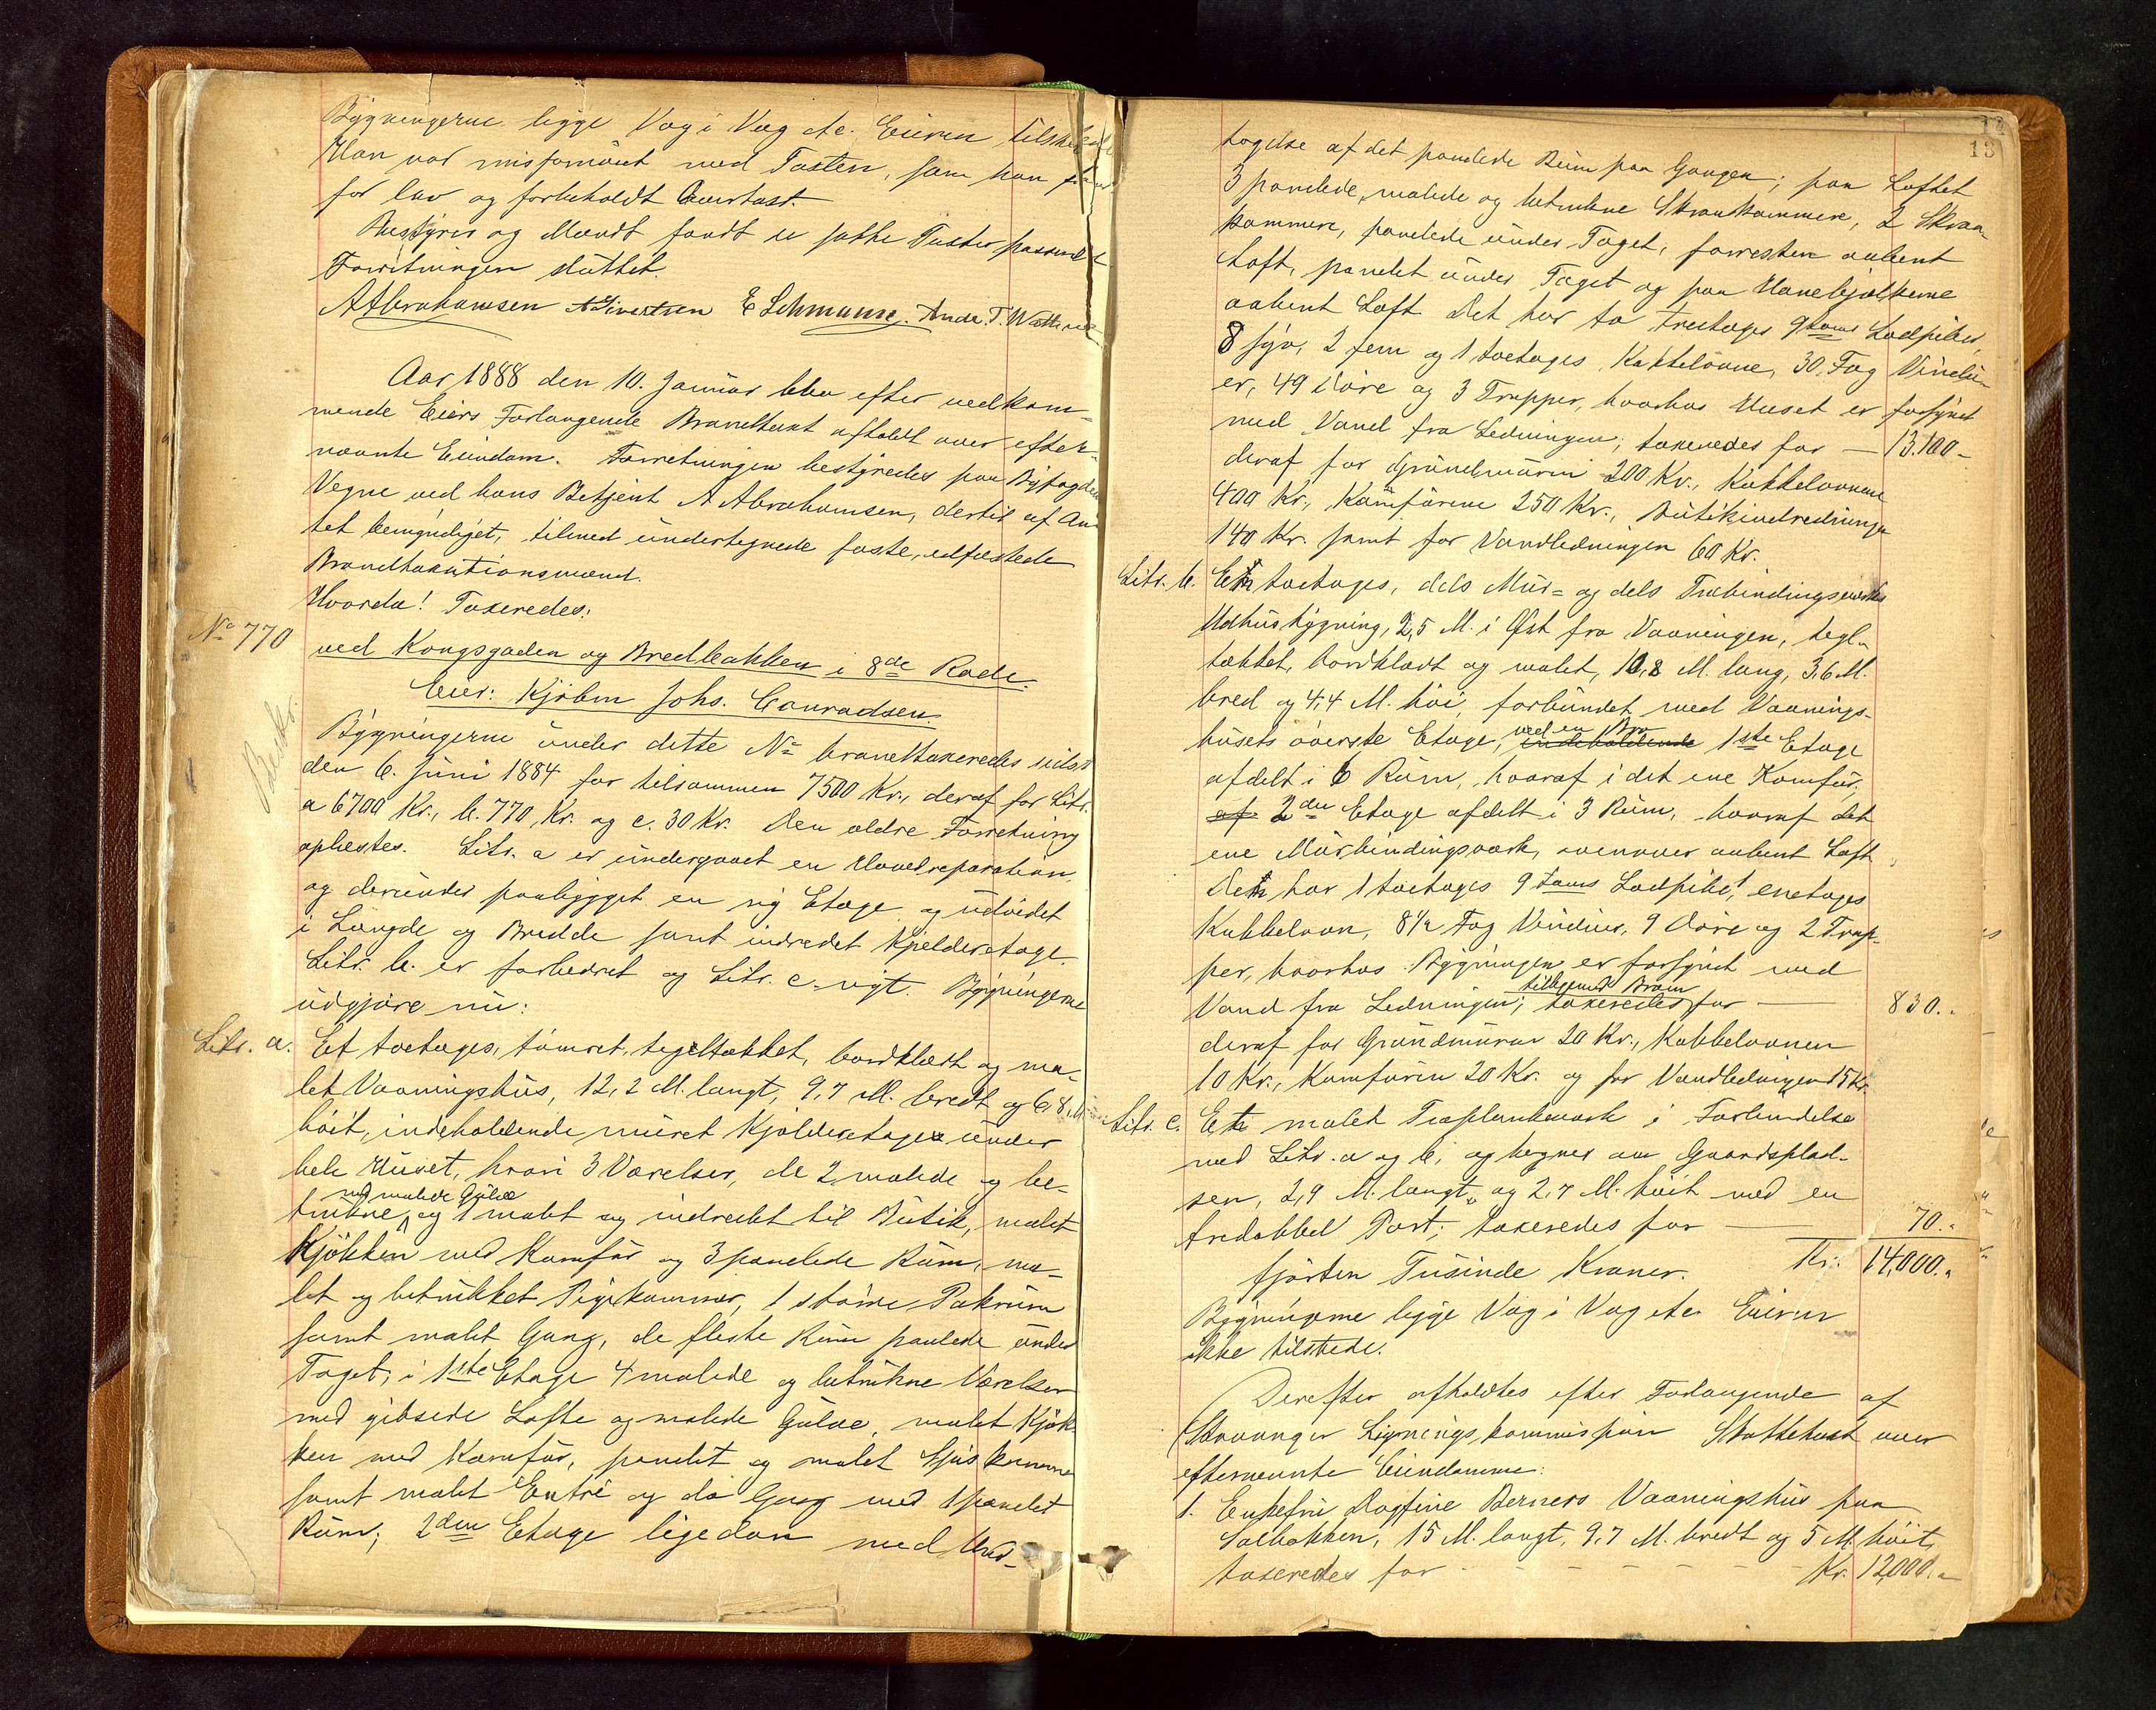 Bygningerne ligge Væg i Væg etc. Eieren tilstede
Han var misfornöiet med Taxten, som han fandt
for lav og forbeholdt Overtaxt.
Bestyrer og Mændt fandt de satte Taxter passende
Forretningen sluttet
AAbrahamsen ASivertsen E Lehmann. Andr. T. Watne
Aar 1888 den 10. Januar blev efter vedkom-
mende Eiers Forlangende Brandtaxt afholdt over efter-
nævnte Eiendom. Forretningen bestyredes paa Byfogdens
Vegne ved hans Betjent A Abrahamsen, dertil af Am-
tet bemyndiget, tilmed undertegnede faste, edfæstede
Brandtaxationsmænd.
Hvorda! Taxeredes:
No 770
ved Kongsgaden og Bredbakken i 8de Rode.
Eier: Kjöbm Johs. Conradsen.
Bygningerne under dette No brandtaxeredes sidst
den 6. Juni 1884 for tilsammen 7500 Kr., deraf for Litr.
a 6700 Kr., b. 770 Kr. og c. 30 Kr. Den ældre Forretning
oplæstes. Litr. a er undergaaet en Hovedreparation,
og derunder paabygget en ny Etage og udvidet
i Længde og Bredde samt indredet Kjelderetage.
Litr. b. er forbedret og Litr. c. nyt. Bygningerne
udgjöre nu:
Litr. a. Et toetages, tömret, tegltækket, bordklædt og ma-
let Vaaningshus, 12,2 M. langt, 9,7 M. bredt og 6,8 M.
höit, indeholdende muret Kjelderetage under
hele Huset, hvori 3 Værelser, de 2 malede og be-
med malede Gulve
trukne, og 1 malet og indredet til Butik, malet
Kjökken med Komfur og 3 panelede Rum, ma-
let og betrukket Pigekammer, 1 större Pakrum
samt malet Gang, de fleste Rum panlede under
Taget; i 1ste Etage 4 malede og betrukne Værelser
med gibsede Lofte og malede Gulve, malet Kjök-
ken med Komfur, panelet og malet Spiskammer
samt malet Entré og do Gang med 1 panelet
Rum; 2den Etage ligedan med Und-
13
tagelse af det panelede Rum paa Gangen; paa Loftet
3 panelede, malede og betrukne Skraakammere, 2 Skraa-
kammere, panelede under Taget, forresten aabent
Loft, panelet under Taget og paa Hanebjelkerne
aabent Loft. Det har to treetages 9 toms Lodpiber,
8 syv, 2 fem og 1 toetages Kakkelovne, 30 Fag Vindu-
er, 49 Döre og 3 Trapper, hvorhos Huset er forsynet
med Vand fra Ledningen; taxeredes for — 13.100 -
deraf for Grundmuren 200 Kr., Kakkelovnene
400 Kr., Komfurene 250 Kr., Butikindredningen
140 Kr. samt for Vandledningen 60 Kr.
Litr. b. En toetages, dels Mur- og dels Træbindingsværks
Udhusbygning, 2,5 M. i Öst fra Vaaningen, tegl-
tækket, bordklædt og malet, 10,8 M. lang, 3,6 M.
bred og 4,4 M. höi, forbundet med Vaanings-
husets överste Etage, ved en Bro indeholdende 1ste Etage
afdelt i 6 Rum, hvoraf i det ene Komfur,
af 2den Etage afdelt i 3 Rum, hvoraf det
ene Murbindingsværk, ovenover aabent Loft.
Den har 1 toetages 9 toms Lodpibe, 1 enetages
Kakkelovn, 8 1/2 Fag Vinduer, 9 Döre og 2 Trap-
per, hvorhos Bygningen er forsynet med
tilligemed Broen
Vand fra Ledningen; taxeredes for — 830. „
deraf for Grundmuren 20 Kr., Kakkelovnen
10 Kr., Komfuren 20 Kr. og for Vandledningen 15 Kr.
Litr. c. Et malet Træplankeværk i Forbindelse
med Litr. a og b, og hegner om Gaardsplad-
sen, 2,9 M. langt, og 2,7 M. höit med en
tredobbel Port; taxeredes for — 70. „
fjorten Tusinde Kroner. Kr. 14,000. „
Bygningerne ligge Væg i Væg etc. Eieren
ikke tilstede.
Derefter afholdtes efter Forlangende af
Stavanger Ligningskommission Skattetaxt over
efternevnte Eiendomme:
1. Enkefru Dorfine Berners Vaaningshus paa
Solbakken, 15 M. langt, 9,7 M. bredt og 5 M. höit,
taxeredes for - - - - - Kr. 12,000. „